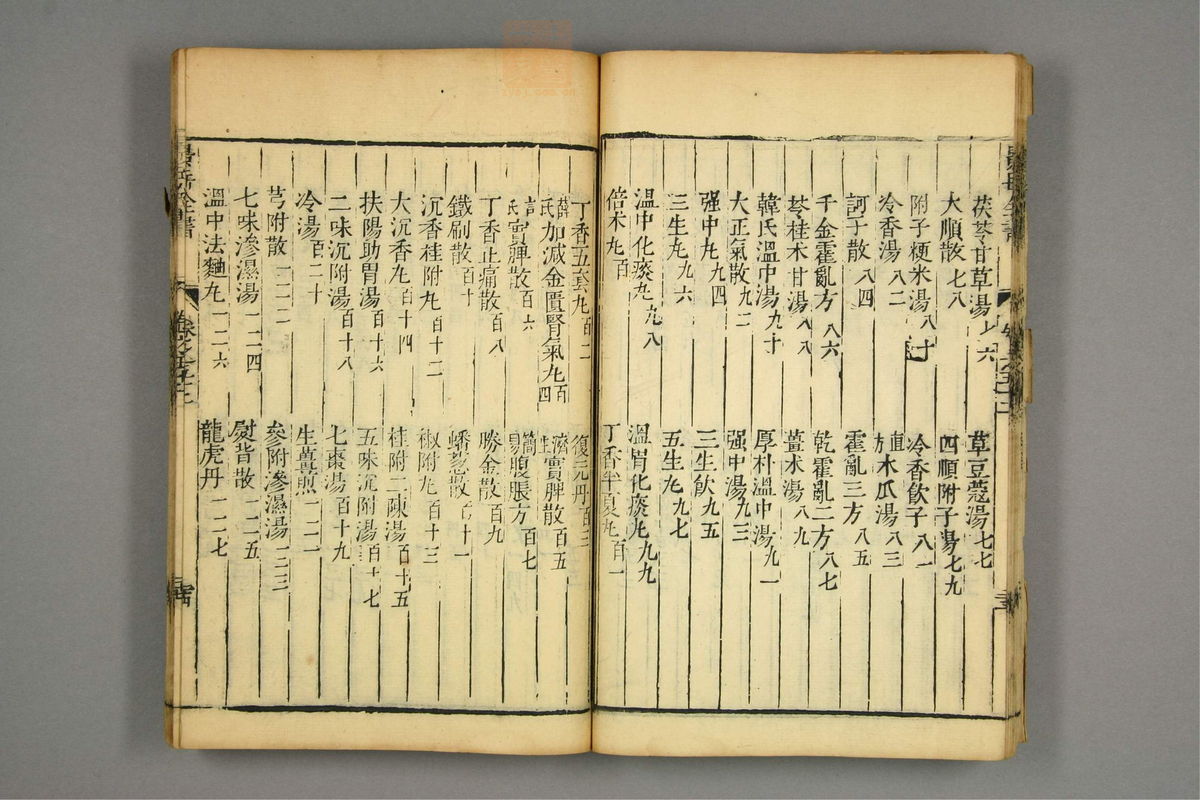 茯苓甘草湯七六
草豆蔻湯七七
大順散七八
四順附子湯七九
附子粳米湯八十
冷香飲子八一
冷香湯八二
木瓜湯八三
訶子散八四
霍亂三方八五
千金霍亂方八六
乾霍亂二方八七
苓桂术甘湯八八
薑术湯八九
韓氏溫中湯九十
厚朴溫中湯九一
大正氣散九二
强中湯九三
强中丸九四
三生飲九五
三生丸九六
五生丸九七
溫中化痰丸九八
溫胃化痰丸九九
倍术丸百
丁香半夏丸百一
丁香五套丸百二
復元丹百三
薛氏加减金匱腎氣丸百四
濟生實脾散百五
言氏實脾散百六
簡易腹脹方百七
丁香止痛散百八
勝金散百九
鐵刷散百十
蟠葱散百十一
沉香桂附丸百十二
椒附丸百十三
大沉香丸百十四
桂附二陳湯百十五
扶陽助胃湯百十六
五味沉附湯百十七
二味沉附湯百十八
七棗湯百十九
冷湯百二十
生薑煎一二一
芎附散一二二
參附滲濕湯一二三
七味滲濕湯一二四
熨背散一二五
溫中法麯丸一二六
龍虎丹一二七
景岳全書